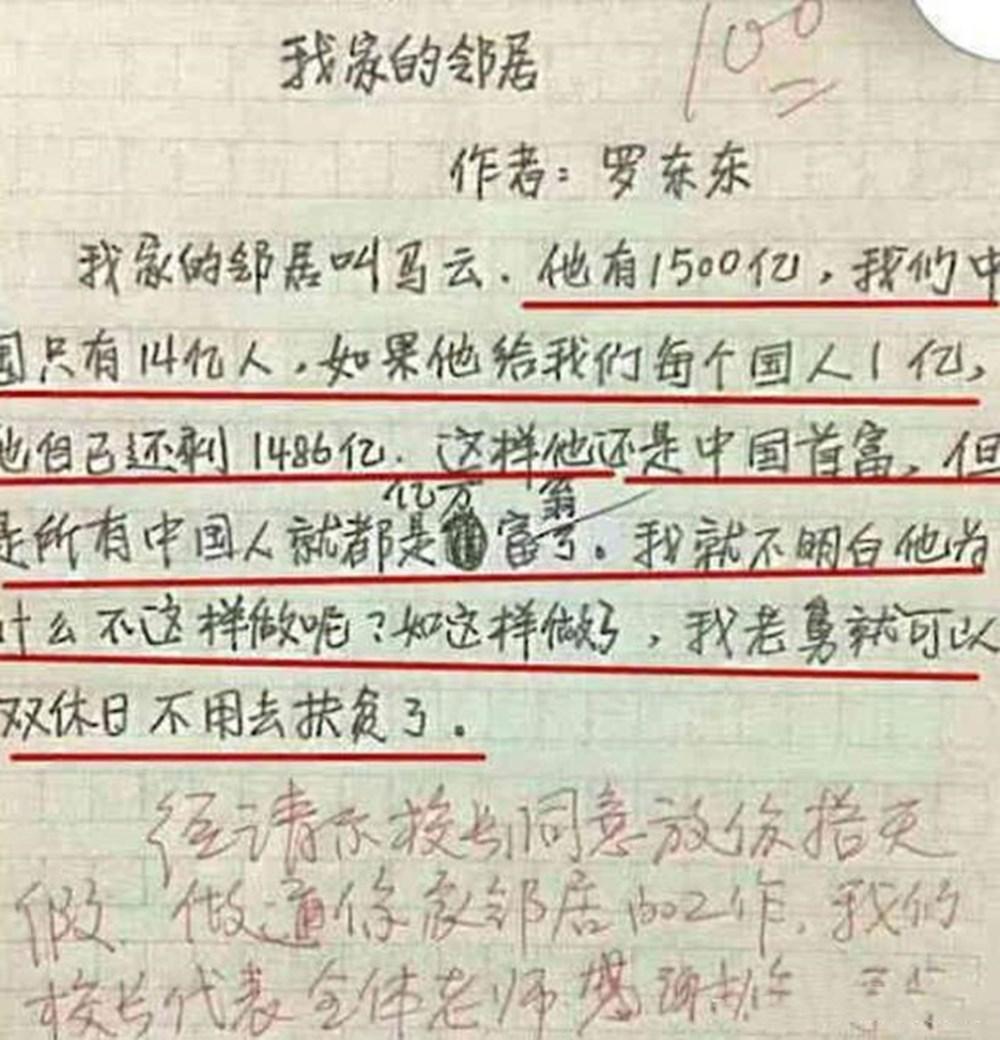 我家的邻居
100
作者：罗东东
我家的邻居叫马云．他有1500亿，我们中
国只有14亿人，如果他给我们每个国人1亿，
他自己还剩1486亿．这样他还是中国首富，但
亿万 翁
是所有中国人就都是富了。我就不明白他为
什么不这样做呢？如这样做了，我老舅就可以
双休日不用去扶贫了。
经请示校长同意放你拾天
假．做通你家邻居的工作．我们
校长代表全体老师 谢你